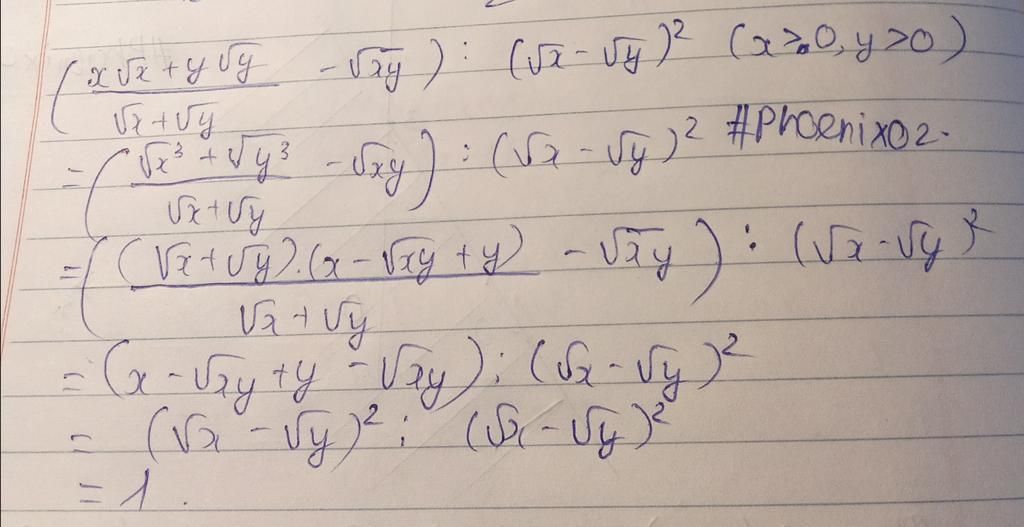 (x√x + y√y / √x + √y - √xy) : (√x - √y)² (x ≥ 0, y > 0)
= (√x³ + √y³ / √x + √y - √xy) : (√x - √y)² #Phoenix02.
= ((√x + √y).(x - √xy + y) / √x + √y - √xy) : (√x - √y)²
= (x - √xy + y - √xy) : (√x - √y)²
= (√x - √y)² : (√x - √y)²
= 1.